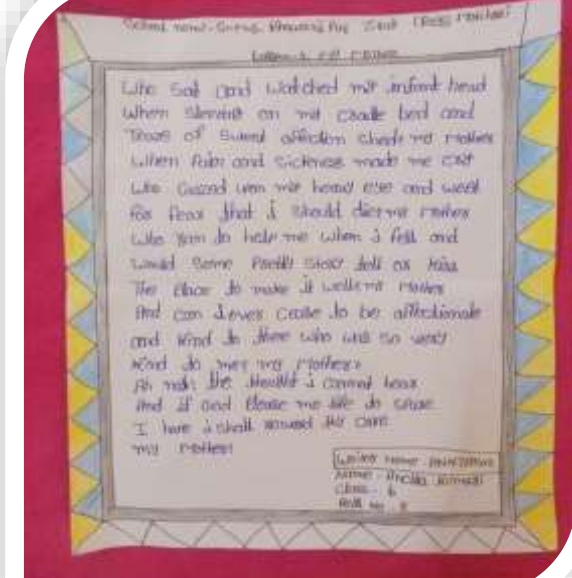 Who Sat and Watched my infant head
When Sleeping on my cradle bed and
Tears of Sweet affection Shed my Mother
When Pain and Sickness made me cry
Who Gazed upon my heavy eye and weep
for fear that i should die my Mother
Who ran to help me when i fell and
Would Some Pretty Story tell or kiss
The Place to make it well my Mother
And can i ever cease to be affectionate
and kind to thee who was so very
kind to me my Mother
Ah no the thought i cannot bear
And if God Please my life to Spare
I hope i shall reward thy care
my Mother
Writer name
Name - Kumari
Class - 6
Roll No